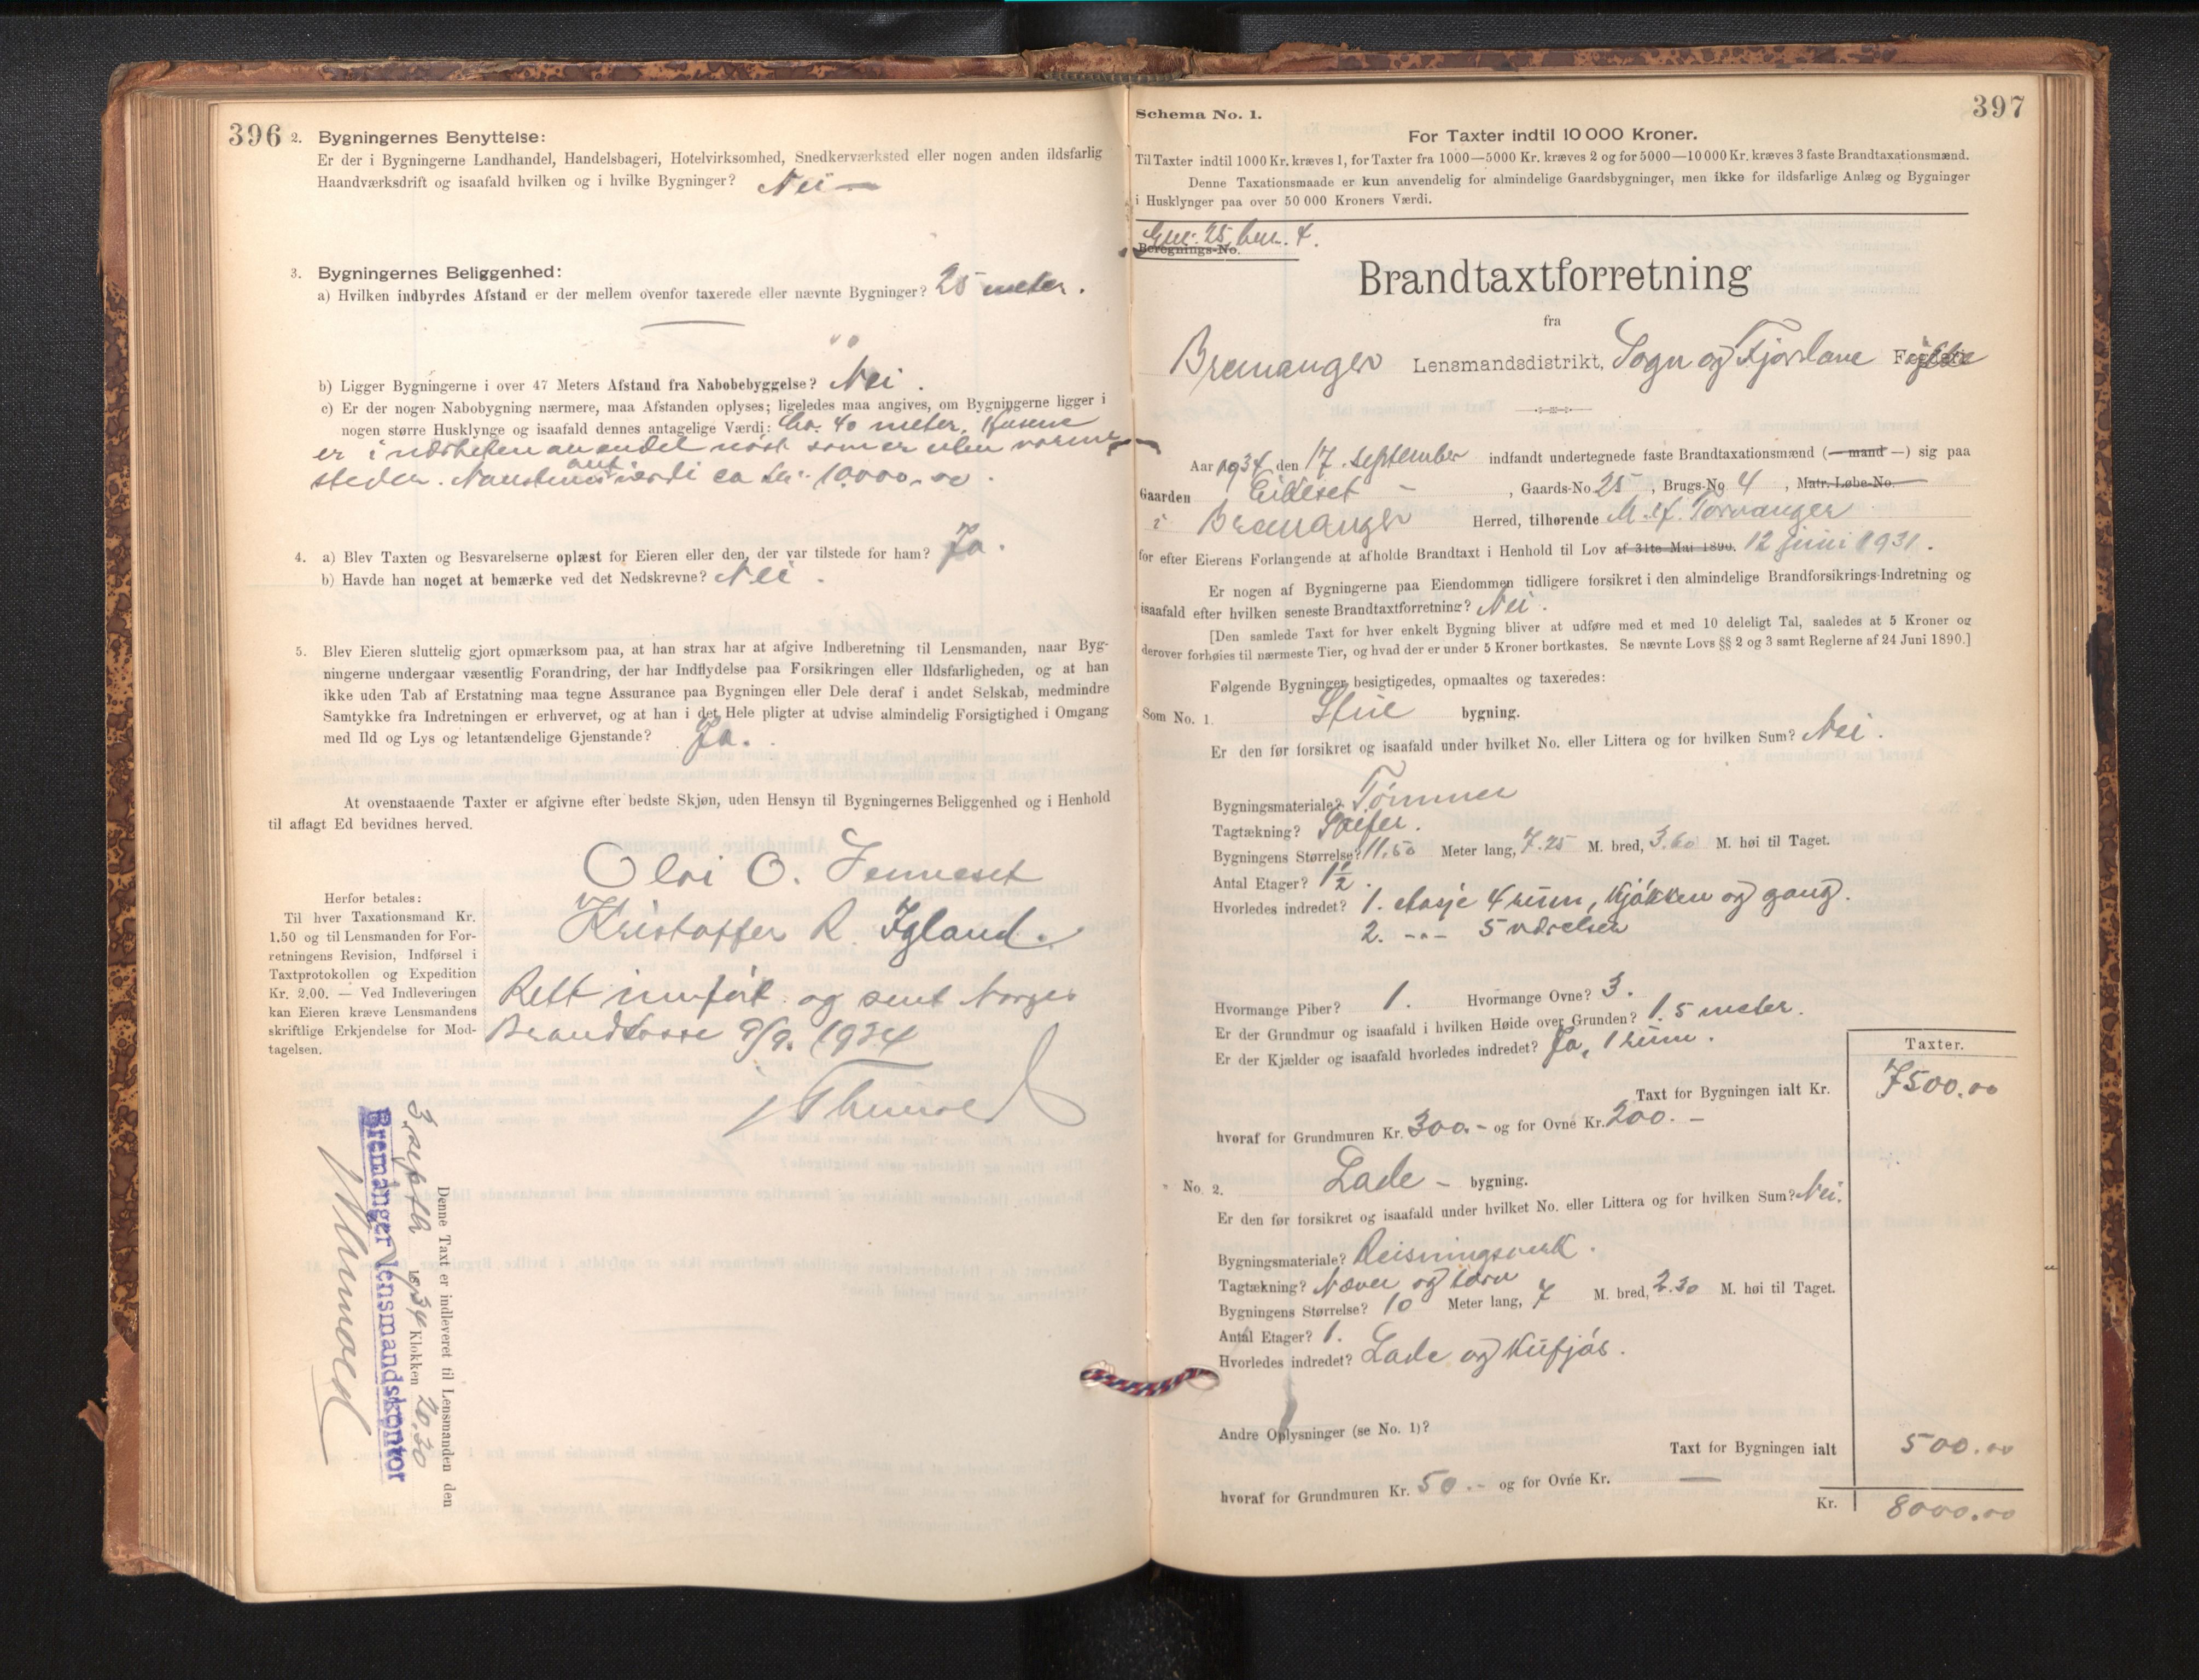 396
2. Bygningernes Benyttelse:
Er der i Bygningerne Landhandel, Handelsbageri, Hotelvirksomhed, Snedkerværksted eller nogen anden ildsfarlig
Haandværksdrift og isaafald hvilken og i hvilke Bygninger? Nei —
3. Bygningernes Beliggenhed:
a) Hvilken indbyrdes Afstand er der mellem ovenfor taxerede eller nævnte Bygninger? 25 meter.
b) Ligger Bygningerne i over 47 Meters Afstand fra Nabobebyggelse? Nei.
c) Er der nogen Nabobygning nærmere, maa Afstanden oplyses; ligeledes maa angives, om Bygningerne ligger i
nogen større Husklynge og isaafald dennes antagelige Værdi: Ca. 40 meter. Husene
er i nærheten av endel nøst som er uten varme
steder. Naustenes ant verdi ca kr. 10000.00.
4. a) Blev Taxten og Besvarelserne oplæst for Eieren eller den, der var tilstede for ham? Ja.
b) Havde han noget at bemærke ved det Nedskrevne? Nei.
5. Blev Eieren sluttelig gjort opmærksom paa, at han strax har at afgive Indberetning til Lensmanden, naar Byg-
ningerne undergaar væsentlig Forandring, der har Indflydelse paa Forsikringen eller Ildsfarligheden, og at han
ikke uden Tab af Erstatning maa tegne Assurance paa Bygningen eller Dele deraf i andet Selskab, medmindre
Samtykke fra Indretningen er erhvervet, og at han i det Hele pligter at udvise almindelig Forsigtighed i Omgang
med Ild og Lys og letantændelige Gjenstande? Ja.
At ovenstaaende Taxter er afgivne efter bedste Skjøn, uden Hensyn til Bygningernes Beliggenhed og i Henhold
til aflagt Ed bevidnes herved.
Olai O. Senneset
Kristoffer R. Igland.
Herfor betales:
Til hver Taxationsmand Kr.
1.50 og til Lensmanden for For-
retningens Revision, Indførsel i
Taxtprotokollen og Expedition
Kr. 2.00. — Ved Indleveringen
kan Eieren kræve Lensmandens
skriftlige Erkjendelse for Mod-
tagelsen.
Rett innført og sent Norges
Brandkasse 9/9. 1934
Denne Taxt er indleveret til Lensmanden den
3. septb 1934 Klokken 20.30
Bremanger lensmandskontor
397
Schema No. 1.
For Taxter indtil 10 000 Kroner.
Til Taxter indtil 1000 Kr. kræves 1, for Taxter fra 1000—5000 Kr. kræves 2 og for 5000—10 000 Kr. kræves 3 faste Brandtaxationsmænd.
Denne Taxationsmaade er kun anvendelig for almindelige Gaardsbygninger, men ikke for ildsfarlige Anlæg og Bygninger
i Husklynger paa over 50 000 Kroners Værdi.
Gnr. 25 bnr. 4.
Beregnings-No.
Brandtaxtforretning
fra
Bremanger Lensmandsdistrikt, Sogn og Fjordane fylke
Aar 1934 den 17. september indfandt undertegnede faste Brandtaxationsmænd (— mand —) sig paa
Gaarden Eideset - , Gaards-No. 25, Brugs-No. 4, Matr.-Løbe-No.
i Bremanger Herred, tilhørende M. A. Torvanger
for efter Eierens Forlangende at afholde Brandtaxt i Henhold til Lov af 31te Mai 1890. 12 juni 1931.
Er nogen af Bygningerne paa Eiendommen tidligere forsikret i den almindelige Brandforsikrings-Indretning og
isaafald efter hvilken seneste Brandtaxtforretning? Nei.
[Den samlede Taxt for hver enkelt Bygning bliver at udføre med et med 10 deleligt Tal, saaledes at 5 Kroner og
derover forhøies til nærmeste Tier, og hvad der er under 5 Kroner bortkastes. Se nævnte Lovs §§ 2 og 3 samt Reglerne af 24 Juni 1890.]
Følgende Bygninger besigtigedes, opmaaltes og taxeredes:
Som No. 1. Stue bygning.
Er den før forsikret og isaafald under hvilket No. eller Littera og for hvilken Sum? Nei.
Bygningsmateriale? Tømmer
Tagtækning? Skifer.
Bygningens Størrelse? 11.50 Meter lang, 7.25 M. bred, 3.60 M. høi til Taget.
Antal Etager? 1½.
Hvorledes indredet? 1. etasje 4 rum, kjøkken og gang.
2. -"- 5 værelser
Hvormange Piber? 1. Hvormange Ovne? 3.
Er der Grundmur og isaafald i hvilken Høide over Grunden? 1.5 meter.
Er der Kjælder og isaafald hvorledes indredet? Ja, 1 rum.
Taxter.
Taxt for Bygningen ialt Kr. 7500.00
hvoraf for Grundmuren Kr. 300.- og for Ovne Kr. 200.-
" No. 2. Lade - bygning.
Er den før forsikret og isaafald under hvilket No. eller Littera og for hvilken Sum? Nei.
Bygningsmateriale? Reisningsverk.
Tagtækning? Næver og torv
Bygningens Størrelse? 10 Meter lang, 7 M. bred, 2.30 M. høi til Taget.
Antal Etager? 1.
Hvorledes indredet? Lade og kufjøs.
Andre Oplysninger (se No. 1)?
Taxt for Bygningen ialt 500.00
hvoraf for Grundmuren Kr. 50.- og for Ovne Kr. —
Kr. 8000.00